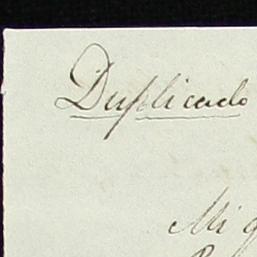 Duplicado
Mi